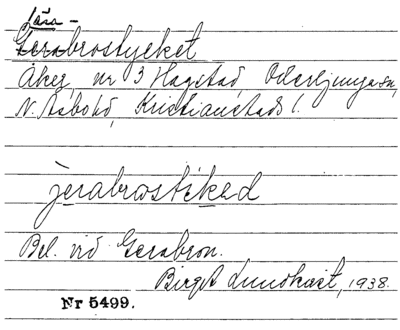 Jära-
Gerabrostycket
Åker, nr 3 Hagstad, Oderljunga sn,
N. Åsbo hd, Kristianstads l.
jerabrostiked
Bel. vid Gerabron.
Birgit Lundkvist, 1938.
Nr 5499.